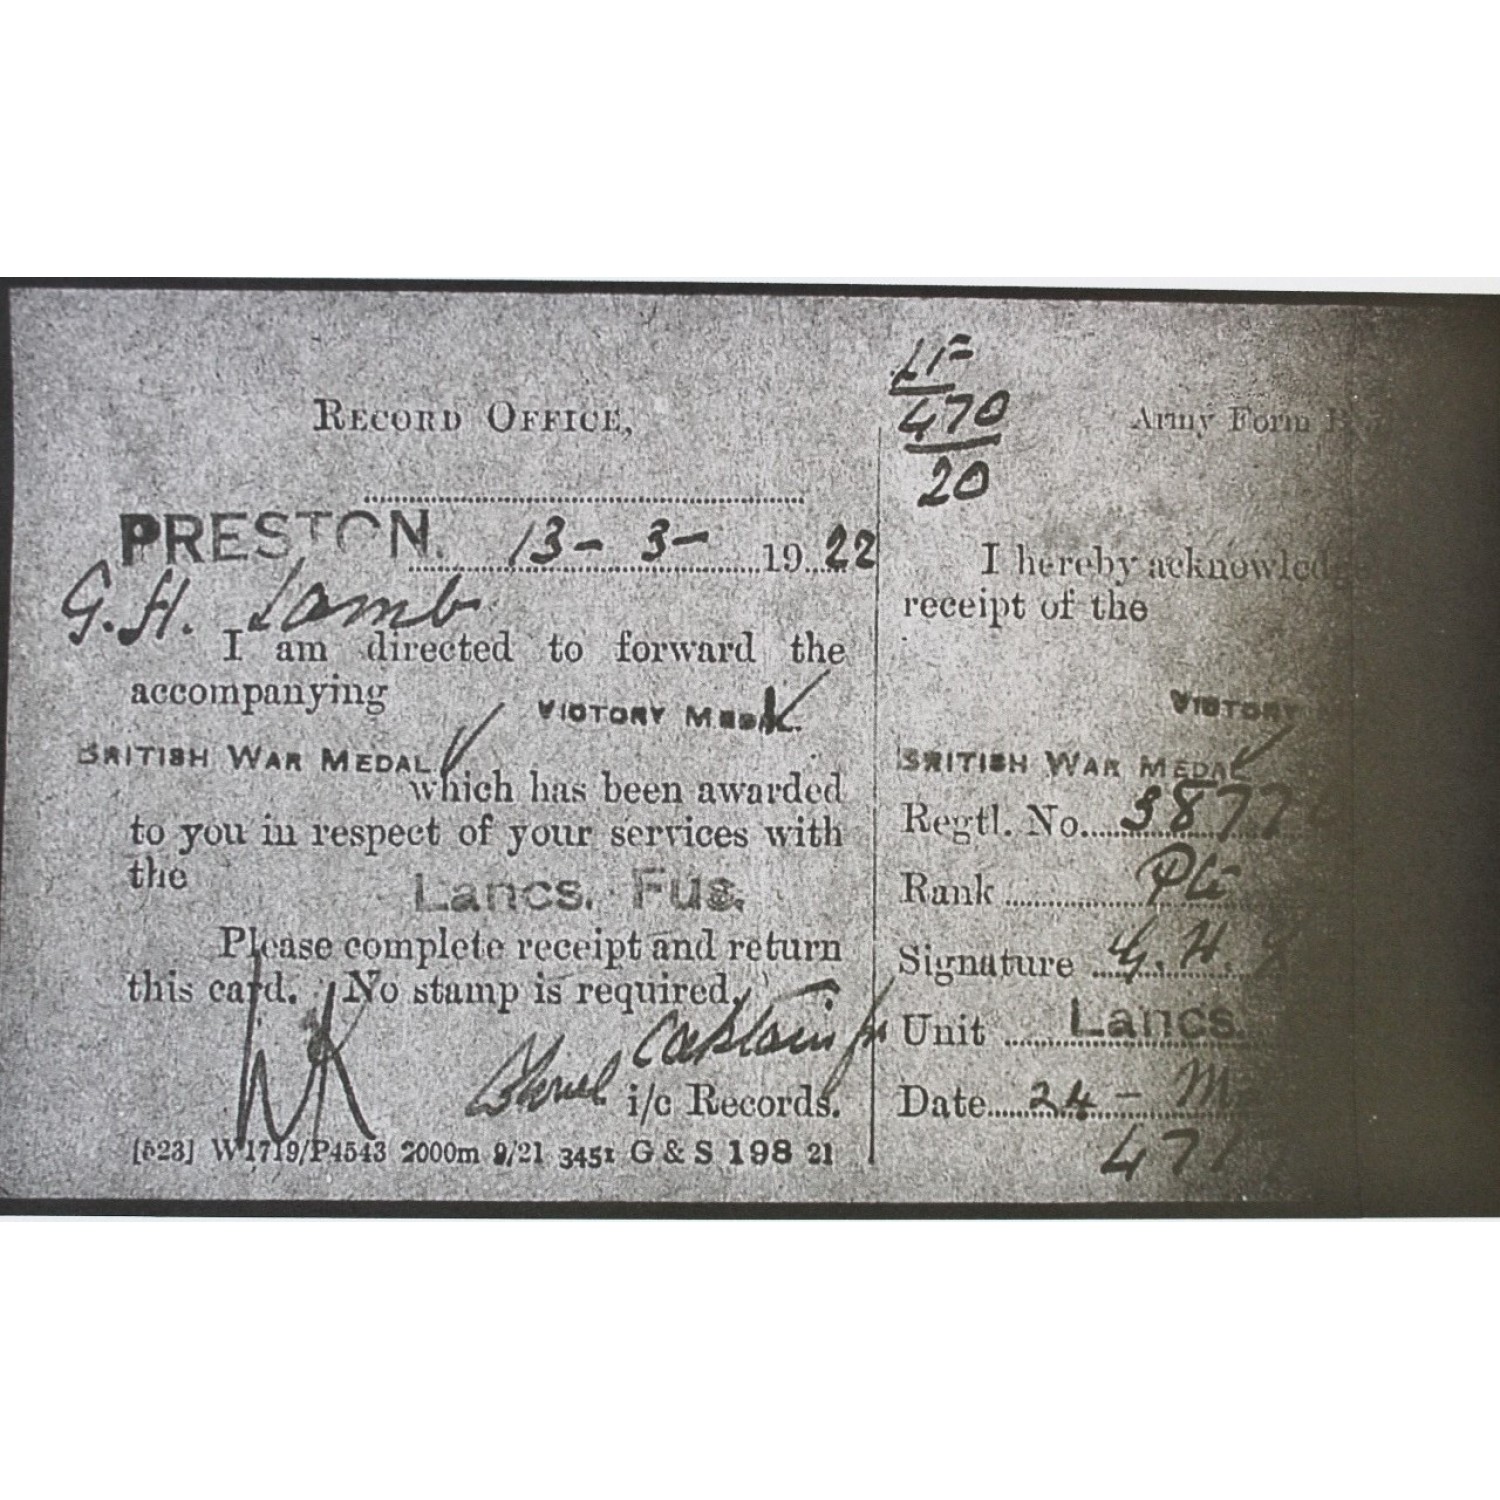 RECORD OFFICE,
PRESTON. 13-3-1922
G.H. Lamb
I am directed to forward the
accompanying
VICTORY MEDAL
BRITISH WAR MEDAL
which has been awarded
to you in respect of your services with
the
Lancs. Fus.
Please complete receipt and return
this card. No stamp is required.
Captain for
i/c Records.
[523] W1719/P4543 2000m 9/21 3451 G & S 198 21
LF
470
20
Army Form
I hereby acknowledge
receipt of the
VICTORY
BRITISH WAR MEDAL
Regtl. No. 3877
Rank Pte
Signature G. H.
Unit Lancs.
Date 24 -
471